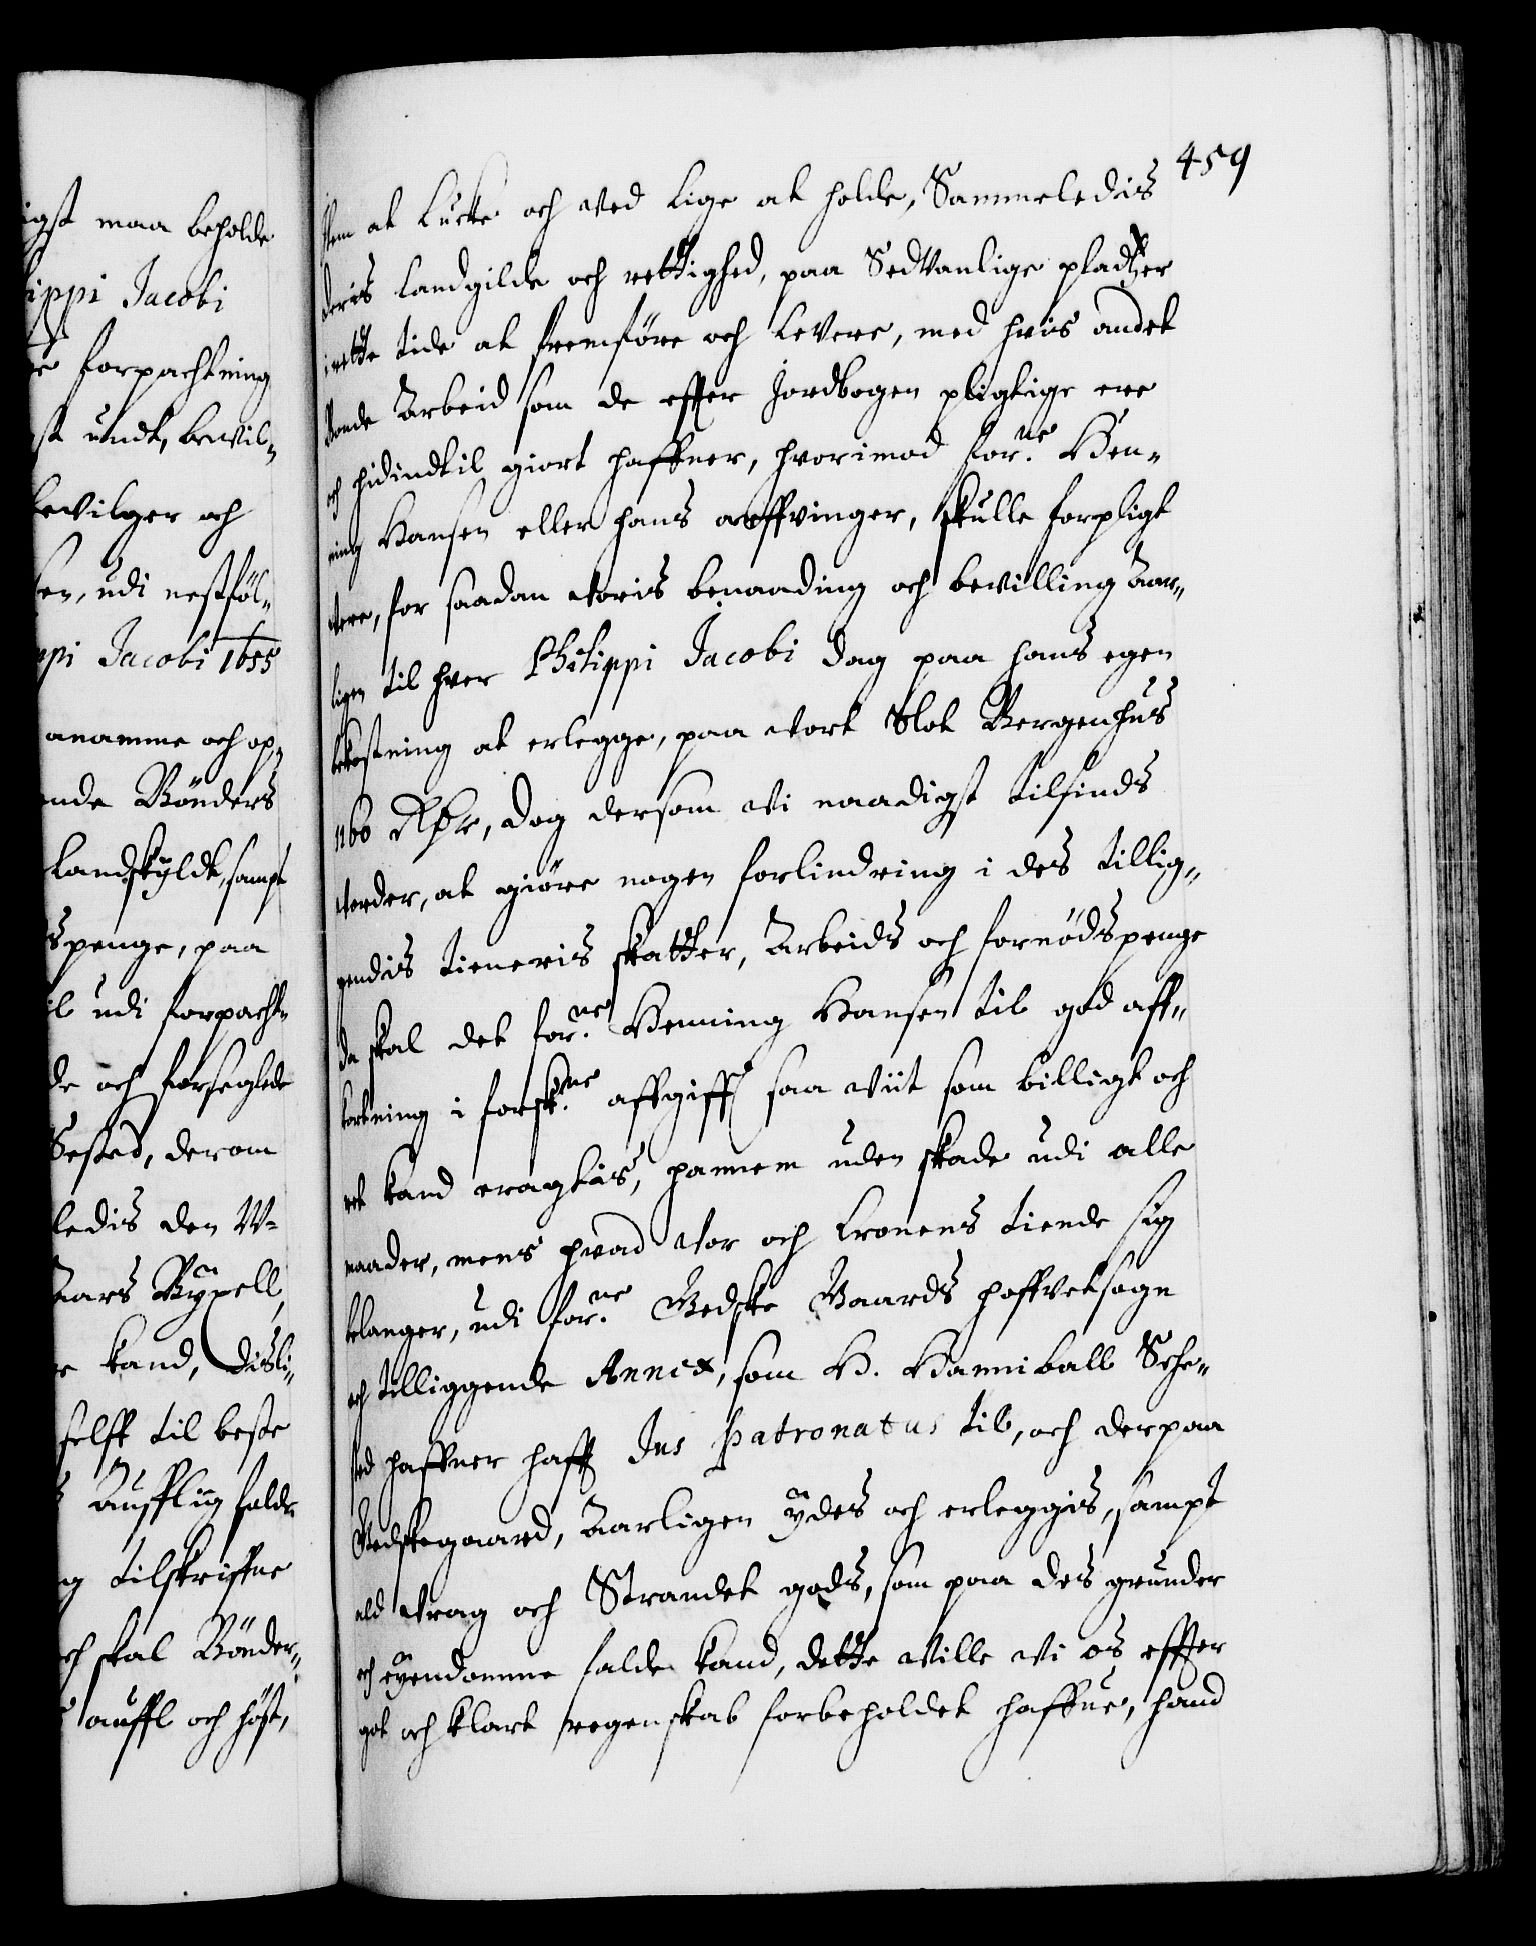 igst maa beholde
lippi Jacobi
forpachtning
st undt, bevil„
bevilger och
sen, udi nestföl„
ppi Jacobi 1655
anamme och op„
ende Bönders
Landskyldt, sampt
spenge, paa
il udi forpacht„
de och forseglede
Sested, derom
ledis den W„
Aars
kand, disli„
selff til beste
falde
tilskriffne
och skal Bönder„
och höst,
459
dem at Lucke och ved Lige at holde, Sammeledis
deris Landgilde och rettighed, paa Sedvanlige pladtzer
i rette tide at fremföre och Levere, med hvis andet
Bonde Arbeid som de effter Jordbogen pligtige ere
och hidindtil giort haffver, hvorimod for:ne Hen„
ning Hansen eller hans arffvinger, skulle forpligt
vere, for saadan voris benaading och bevilling Aar„
ligen til hver Philippi Jacobi dag paa hans egen
bekostning at erlegge, paa vort Slot Bergenhus
1160 Rdr, dog dersom vi naadigst tilsinds
vorder, at giöre nogen forlindring i des tillig„
gendis tieneris skatter, Arbeids och fornödspenge
da skal det for:ne Henning Hansen til god aff„
kortning i forsk:ne affgifft saa viit som billigt och
ret kand eragtis, hannem uden skade udi alle
maader, mens hvad vor och Cronens tiende sig
belanger, udi for:ne Gedske Gaards hoffvetsogn
och tilliggende Annex, som H. Hanniball Sehe„
sted haffver hafft Jus patronatus til, och derpaa
Gedskegaard, Aarligen ÿdes och erleggis, sampt
ald vrag och Strandet gods, som paa des grunder
och eÿendomme falde kand, dette ville vi os effter
got och klart regenskab forbeholdet haffue, hand